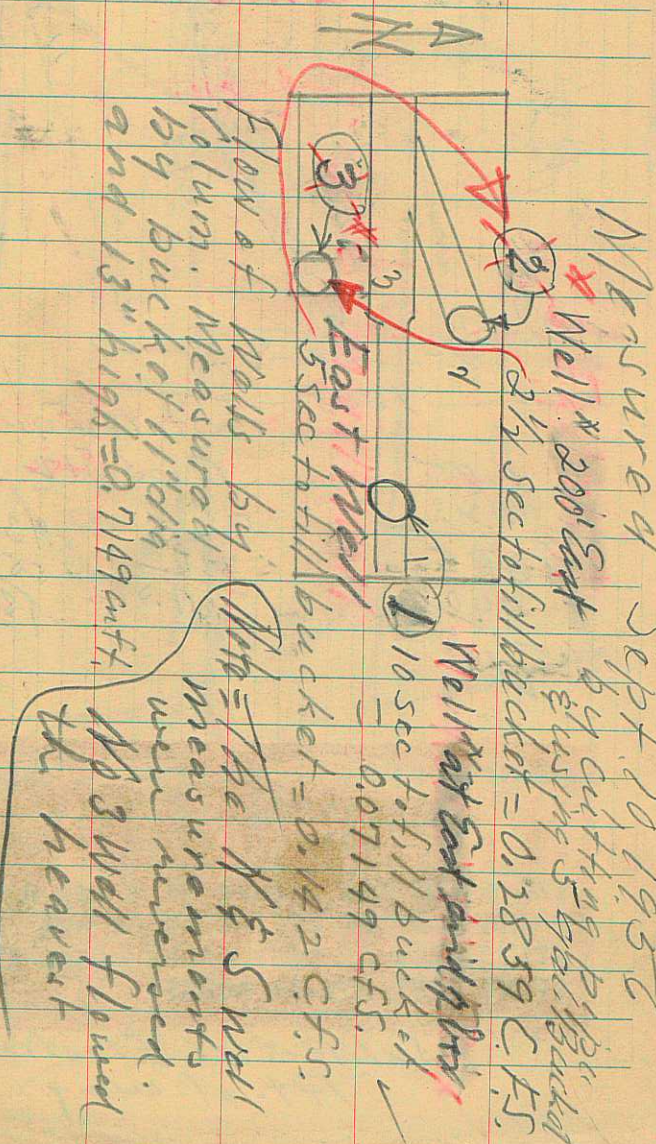 Measured Sept. 10 1956
by cutting pipe
* Well * 200' East & using 5 gal. Bucket
2
2½ sec to fill bucket = 0.2859 C.F.S.
Well * at East end
1
10 sec to fill bucket
= 0.07149 c.f.s.
3
East Well
5 sec to fill bucket = 0.142 C.f.s.
Flow of Wells by
Volum. Measured
by bucket 11" dia
and 13" high = 0.7149 cu ft.
Note = The N & S well
measurements
were reversed.
No 3 Well flowed
the heavest
N